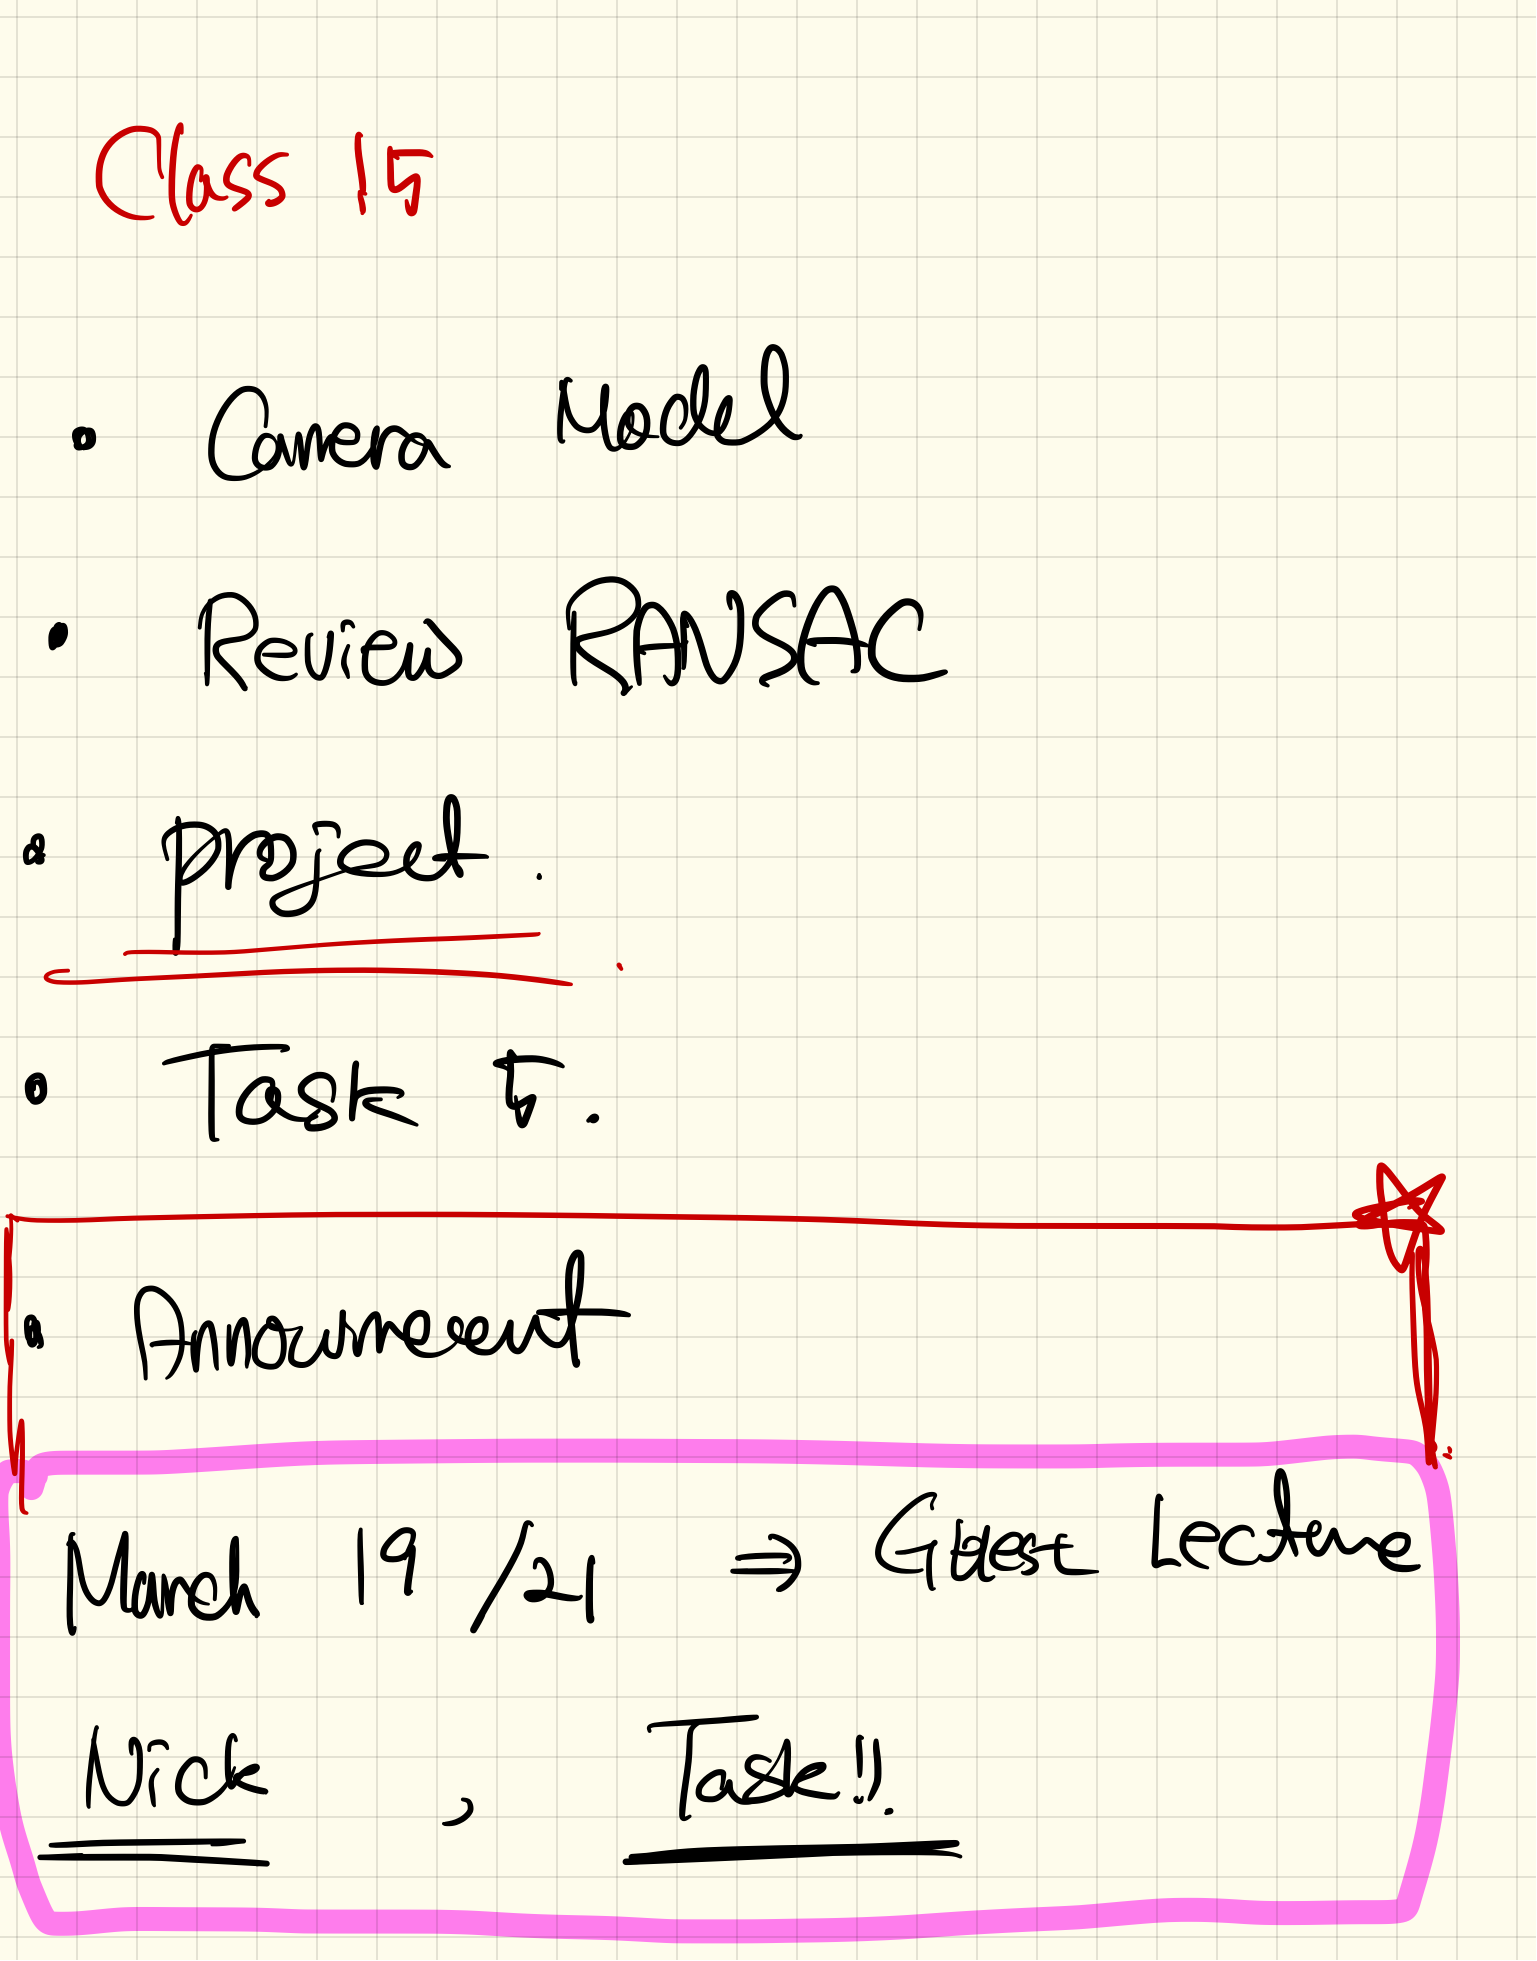 Class 15
• Camera Model
• Review RANSAC
• project.
• Task 5.
• Announcent
March 19/21 ⇒ Guest Lecture
Nick, Task!!